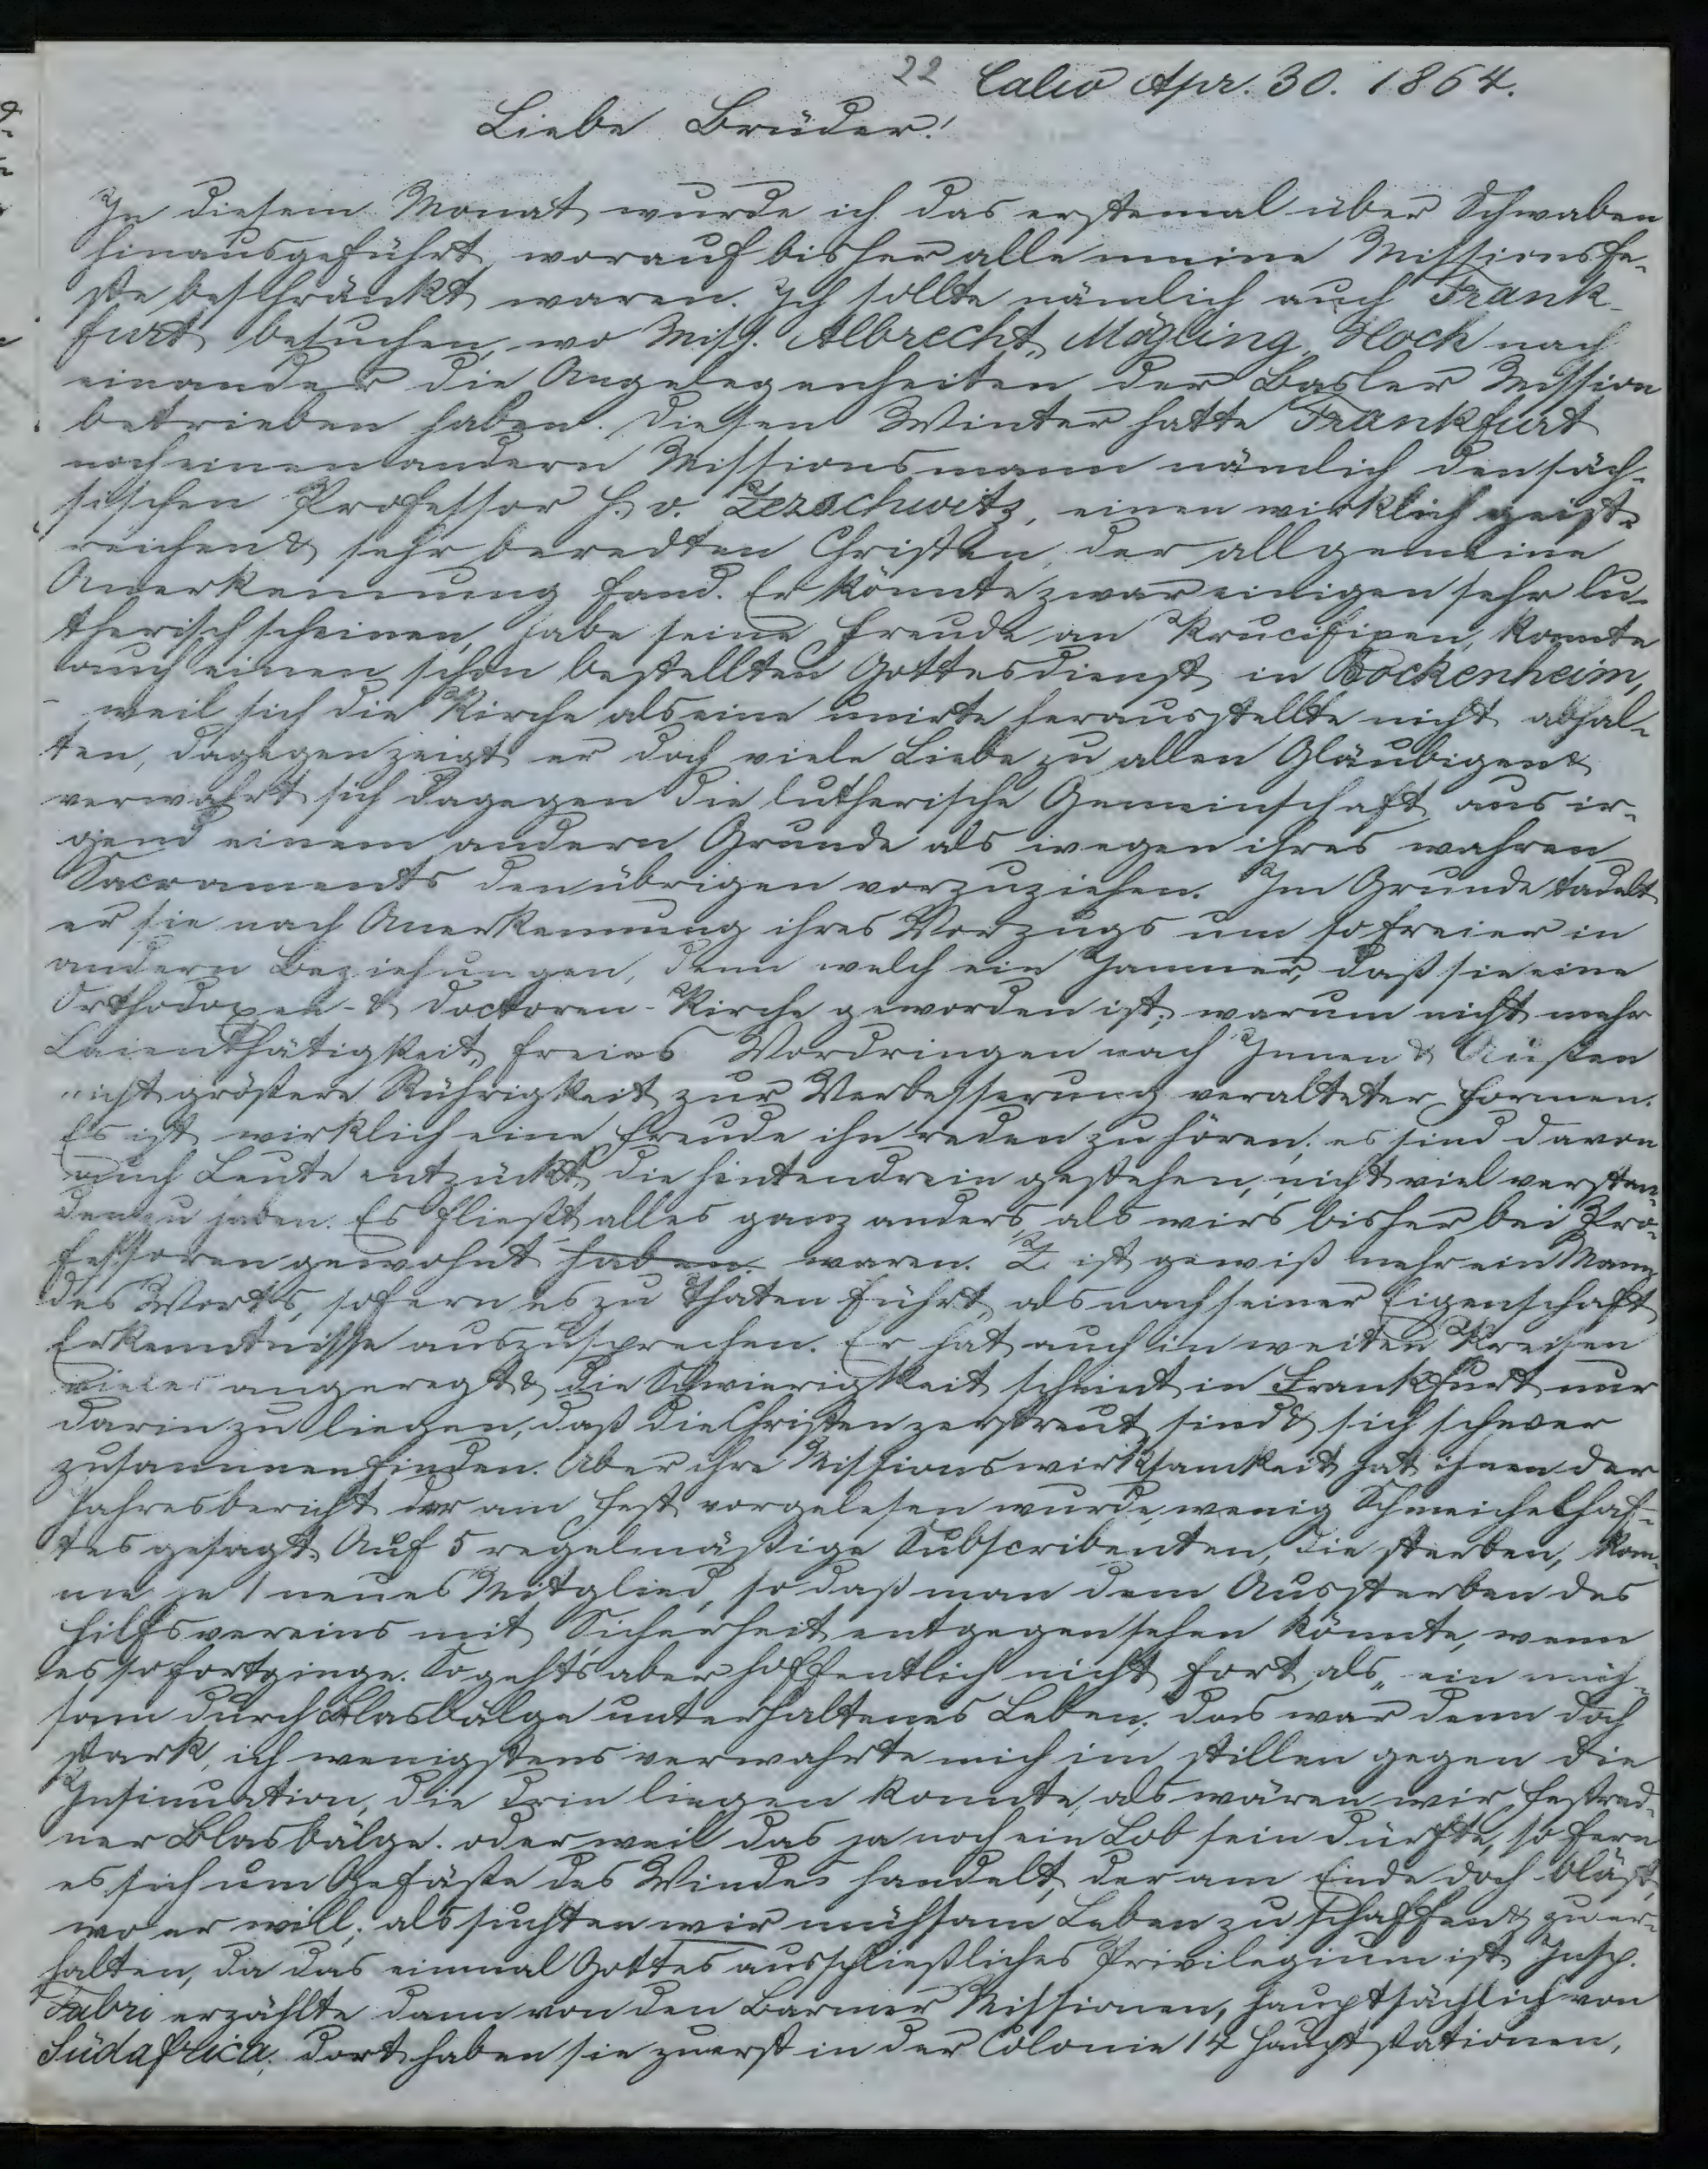 22 Calw Apr. 30. 1864.
Liebe Brüder!
In diesem Monat wurde ich das erstemal über Schwaben
hinausgeführt, worauf bisher alle meine Missionsfe-
ste beschränkt waren. Ich sollte nämlich auch Frank-
furt besuchen, wo Miss. Albrecht, Mögling, Hoch nach
einander die Angelegenheiten der Basler Mission
betrieben haben. Diesen Winter hatte Frankfurt
noch einen andern Missionsmann nämlich den säch-
sischen Professor H. v. Zezschwitz, einen wirklich geist-
reichen & sehr beredten Christen, der allgemeine
Anerkennung fand. Er könnte zwar einigen sehr lu-
therisch scheinen, habe seine Freude an Krucifixen, konnte
auch einen schon bestellten Gottesdienst in Bockenheim,
weil sich die Kirche als eine unirte herausstellte nicht abhal-
ten, dagegen zeigt er doch viele Liebe zu allen Gläubigen &
verwahrt sich dagegen die lutherische Gemeinschaft aus ir-
gend einem andern Grunde als wegen ihres wahren
Sacraments den übrigen vorzuziehen. Im Grunde tadelt
er sie nach Anerkennung ihres Vorzugs um so freier in
andern Beziehungen, denn welch ein Jammer, daß sie eine
Orthodoxen- & Doctoren-Kirche geworden ist; warum nicht mehr
Laienthätigkeit, freies Vordringen nach Innen & Außen
nicht größere Rührigkeit zur Verbesserung veralteter Formen.
Es ist wirklich eine Freude ihn reden zu hören; es sind davon
auch Leute entzückt, die hintendrein gestehen, nicht viel verstan-
den zu haben. Es fließt alles ganz anders, als wirs bisher bei Pro-
fessoren gewohnt haben waren. Z ist gewiß mehr ein Mann
des Worts, sofern es zu Thaten führt, als nach seiner Eigenschaft
Erkenntnisse auszusprechen. Er hat auch in weiten Kreisen
vieles angeregt & die Schwierigkeit scheint in Frankfurt nur
darin zu liegen, daß die Christen zerstreut sind & sich schwer
zusammenfinden. Aber ihre Missionswirksamkeit hat ihnen der
Jahresbericht der am Fest vorgelesen wurde, wenig Schmeichelhaf-
tes gesagt. Auf 5 regelmäßige Subscribenten, die sterben, kom-
me je 1 neues Mitglied, so daß man dem Aussterben des
Hilfsvereins mit Sicherheit entgegensehen könnte, wenn
es so fortginge. So gehts aber hoffentlich nicht fort, als „ein müh-
sam durch Blasbälge unterhaltenes Leben; das war denn doch
stark, ich wenigstens verwahrte mich im stillen gegen die
Insinuation, die drin liegen konnte, als wären wir Festred-
ner Blasbälge. oder weil das ja noch ein Lob sein dürfte, so fern
es sich um Gefäße des Windes handelt, der am Ende doch bläst,
wo er will; als suchten wir mühsam Leben zu schaffen & zu er-
halten, da das einmal Gottes ausschließliches Privilegium ist. Insp.
Fabri erzählte dann von den Barmer Missionen, hauptsächlich von
Südafrica. Dort haben sie zuerst in der Colonie 14 Hauptstationen,